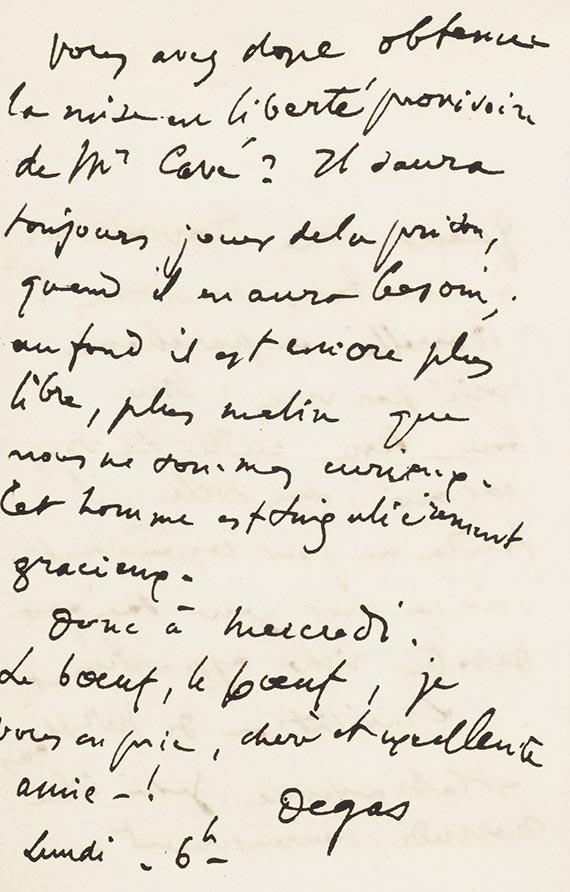 vous avez donc obtenu
la mise en liberté provisoire
de Mr Cavé? Il saura
toujours jouer de la prison,
quand il en aura besoin,
au fond il est encore plus
libre, plus malin que
nous ne sommes curieux.
Cet homme est singulièrement
gracieux.
Donc à mercredi.
Le bœuf, le bœuf, je
vous en prie, chère et excellente
amie -!
Degas
Lundi - 6h -